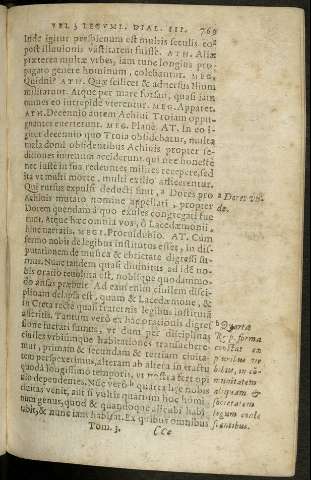 VEL 3 LEGVM. DIAL. III. 769
Inde igitur perspicuum est multis seculis eo?
post illuuionis vastitatem fuisse. ATH. Aliæ
præterea multæ vrbes, iam tunc longius pro-
pagato genere hominum, colebantur. MEG.
Quidni? ATH. Quæ scilicet & aduersus Ilium
militarunt. Atque per mare forsan, quasi iam
omnes eo intrepide vterentur. MEG. Apparet.
ATH. Decennio autem Achiui Troiam oppu-
gnantes euerterunt. MEG. Planè. AT. In eo i-
gitur decennio quo Troia obsidebatur, multa
mala domi obsidentibus Achiuis propter se-
ditiones iuuenum acciderunt, qui nec honestè
nec iustè in sua redeuntes milites recepere, sed
ita vt multi morte, multi exilio afficerentur.
Qui rursus expulsi deducti sunt, a Dores pro
Achiuis mutato nomine appellati, propter
Dorem quendam à quo exules congregati fue
runt. Atque hæc omnia vos, ô Lacedæmonii,
hinc narratis. MEG. Procul dubio. AT. Cum
sermo nobis de legibus institutus esset, in dis-
putationem de musica & ebrietate digressi su-
mus. Nunc tandem quasi diuinitus ad idē no-
bis oratio reuoluta est, nobisque quodammo-
do ansas præbuit. Ad eius enim ciuilem disci-
plinam delapsa est, quum & Lacedæmone, &
in Creta rectè quasi fraternis legibus institutā
asseritis. Tantum verò ex hac orationis digres
sione lucrati sumus, vt dum per disciplinas
ciuiles vrbiumque habitationes transcurre-
mur, primam & secundam & tertiam ciuita-
tem perspexerimus, alteram ab altera in tractu
quodā longissimo temporis, vt nostra fert opi
nio dependentes. Nūc verò b quarta hæc nobis
ciuitas venit, aut si vultis quarum hoc homi-
num genus, quod & quandoque alicubi habi
tabit, & nunc iam habitat. Ex quibus omnibus
Tom. 3. CCc
a Dores vn-
de.
b Quarta
Reip. forma
constat ex
pluribus ur
bibus, in cō-
munitatem
aliquam &
societatem
legum coale
scentibus.